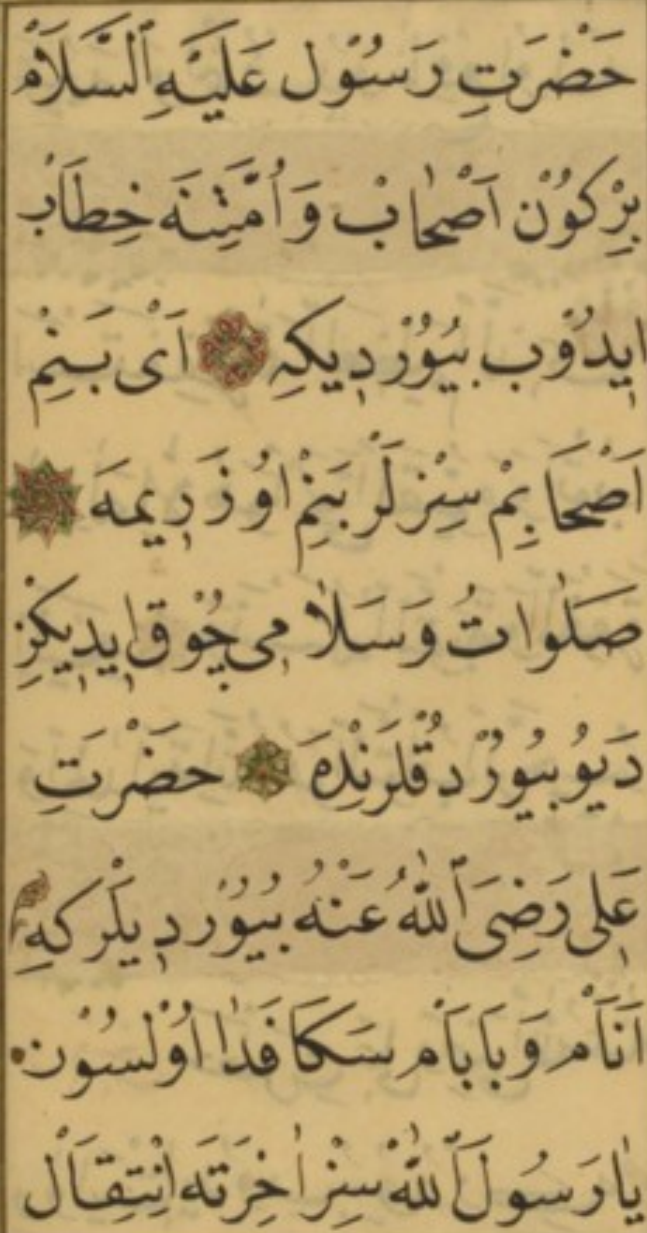 حَضْرَتِ رَسُوْل عَلَيْهِ ٱلسَّلَامْ
بِرْكُوْنْ اَصْحَابْ وَاُمَّتِنَه خِطَابْ
اِيدُوْبْ بُيُوْرْدِيكِه اَىْ بَنِمْ
اَصْحَابِمْ سِزْلَرْ بَنِمْ اُوزَرِيمَه
صَلَوَاتُ وَسَلَامِى چُوْق اِيدِيكِزْ
دَيُو بُيُوْرْدُقْلَرِنْدَه حَضْرَتِ
عَلِى رَضِىَ ٱللّٰهُ عَنْهُ بُيُوْرْدِيلَرْ كِه
اَنَامْ وَبَابَامْ سَكَا فَدَا اُوْلسُوْنْ
يَا رَسُولَ ٱللّٰهْ سِزْ اٰخِرَتَه اِنْتِقَالْ